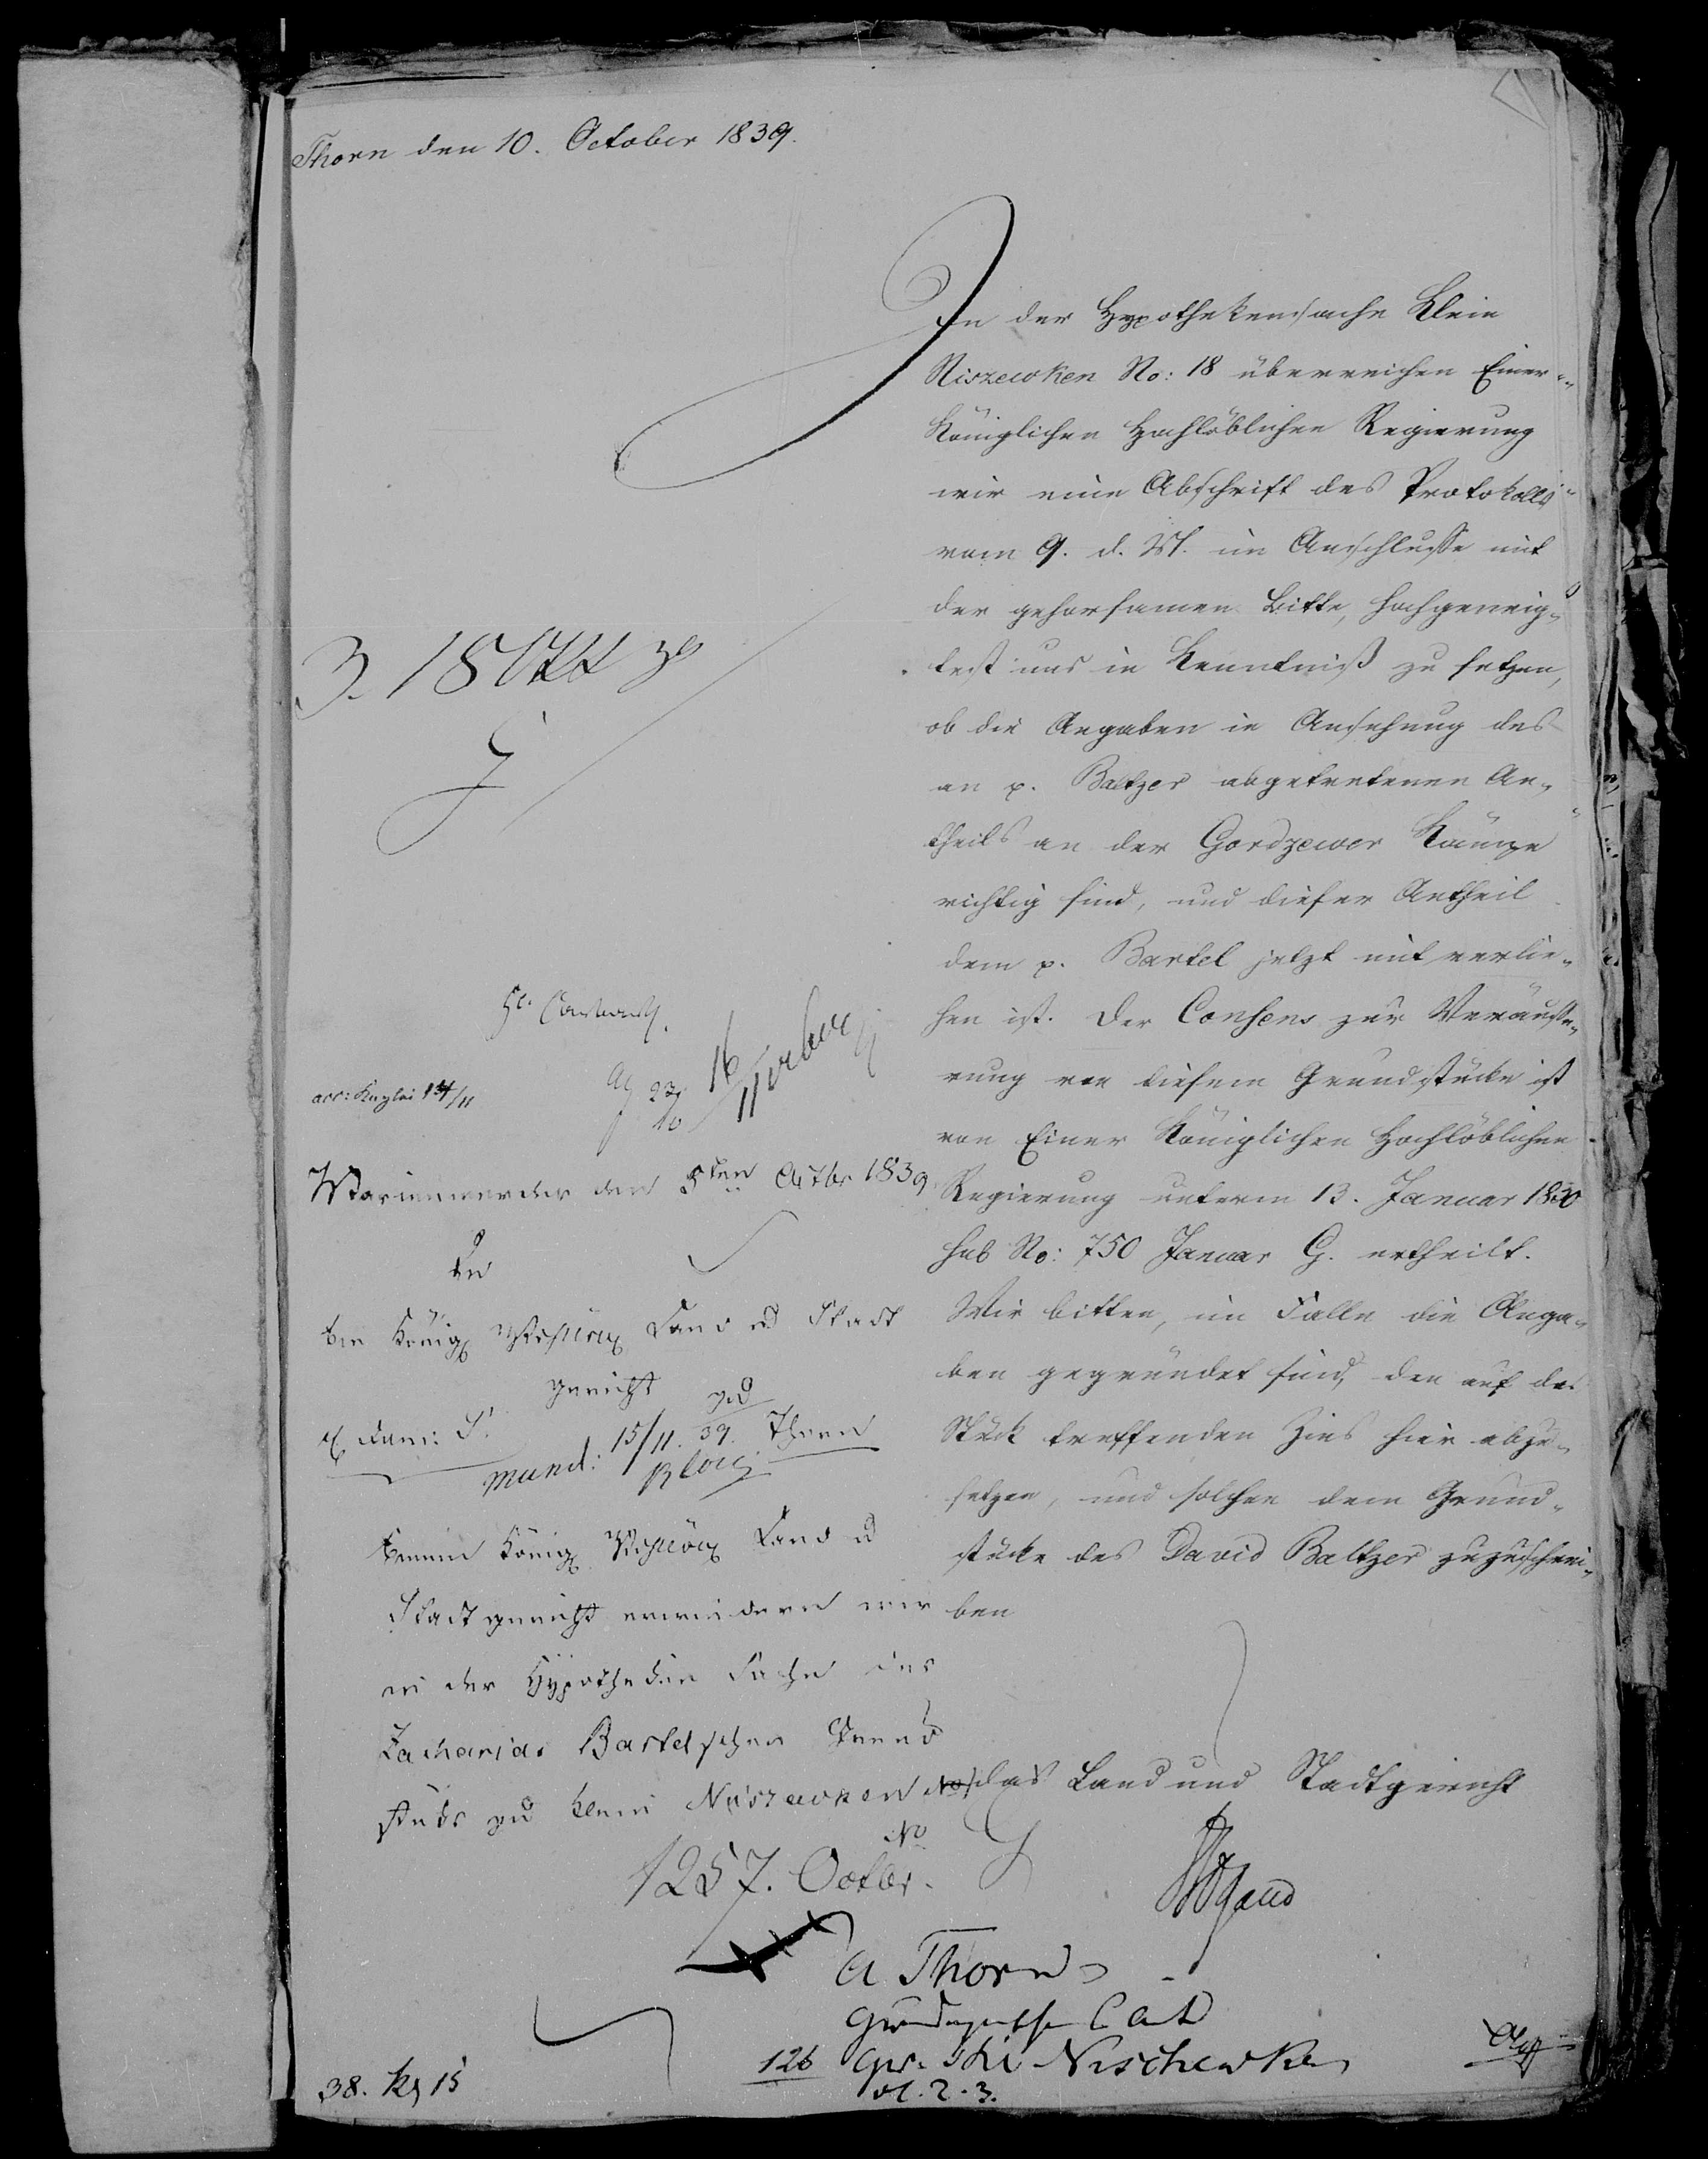 Thorn den 10. October 1839.
In der Hypothekensache Klein
Niszewken No: 18 überreichen Einer
Königlichen Hochlöblichen Regierung
wir eine Abschrift des Protokolls
vom 9. d. M. im Anschlusse mit
der gehorsamen Bitte, hochgeneig-
test uns in Kenntniß zu setzen,
ob die Angaben in Ansehung des
an p. Baltzer abgetretenen An-
theils an der Gordzewer Kämpe
richtig sind, und dieser Antheil
dem p. Bartel jetzt mit verlie-
hen ist. Der Consens zur Veräuße-
rung von diesem Grundstücke ist
von Einer Königlichen Hochlöblichen
Regierung unterm 13. Januar 1830
sub No: 750 Januar G. ertheilt.
Wir bitten, im Falle die Anga-
ben gegründet sind, den auf das
Stück treffenden Zins hier abzu-
setzen, und solchen dem Grund-
stücke des David Baltzer zuzuschrei-
ben
Das Land und Stadtgericht
16/11
23/10
14/11
Marienwerder den 5ten Octbr 1839
An
das Königl Land u Stadt
gericht
zu
Thorn
mund: 15/11. 39.
Einem Königl Land u
Stadtgericht erwiedern wir
in der Hypotheken Sache des
Zacharias Bartelschen Grund
stücks zu Klein Niszewken
No
1257. Octbr.
a Thorn
126 Nischewken
vl. 2. 3.
38.
15